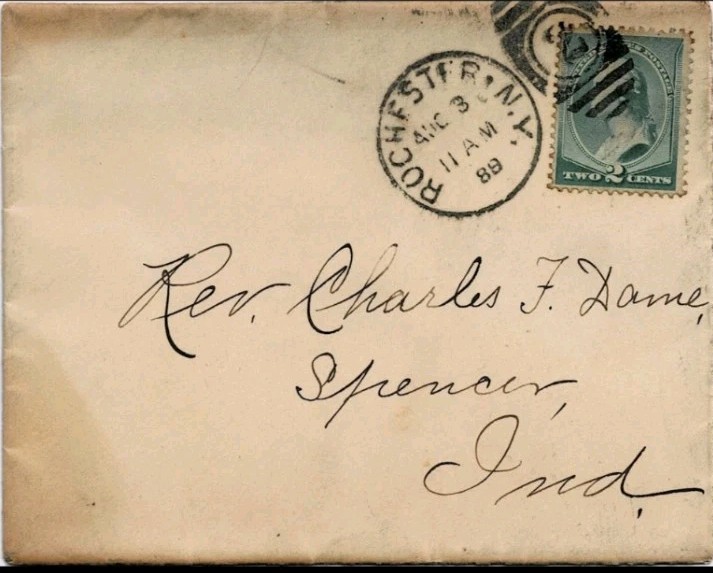 ROCHESTER. N.Y.
AUG 3
11 AM
88
TWO 2 CENTS
Rev. Charles F. Dame,
Spencer,
Ind.